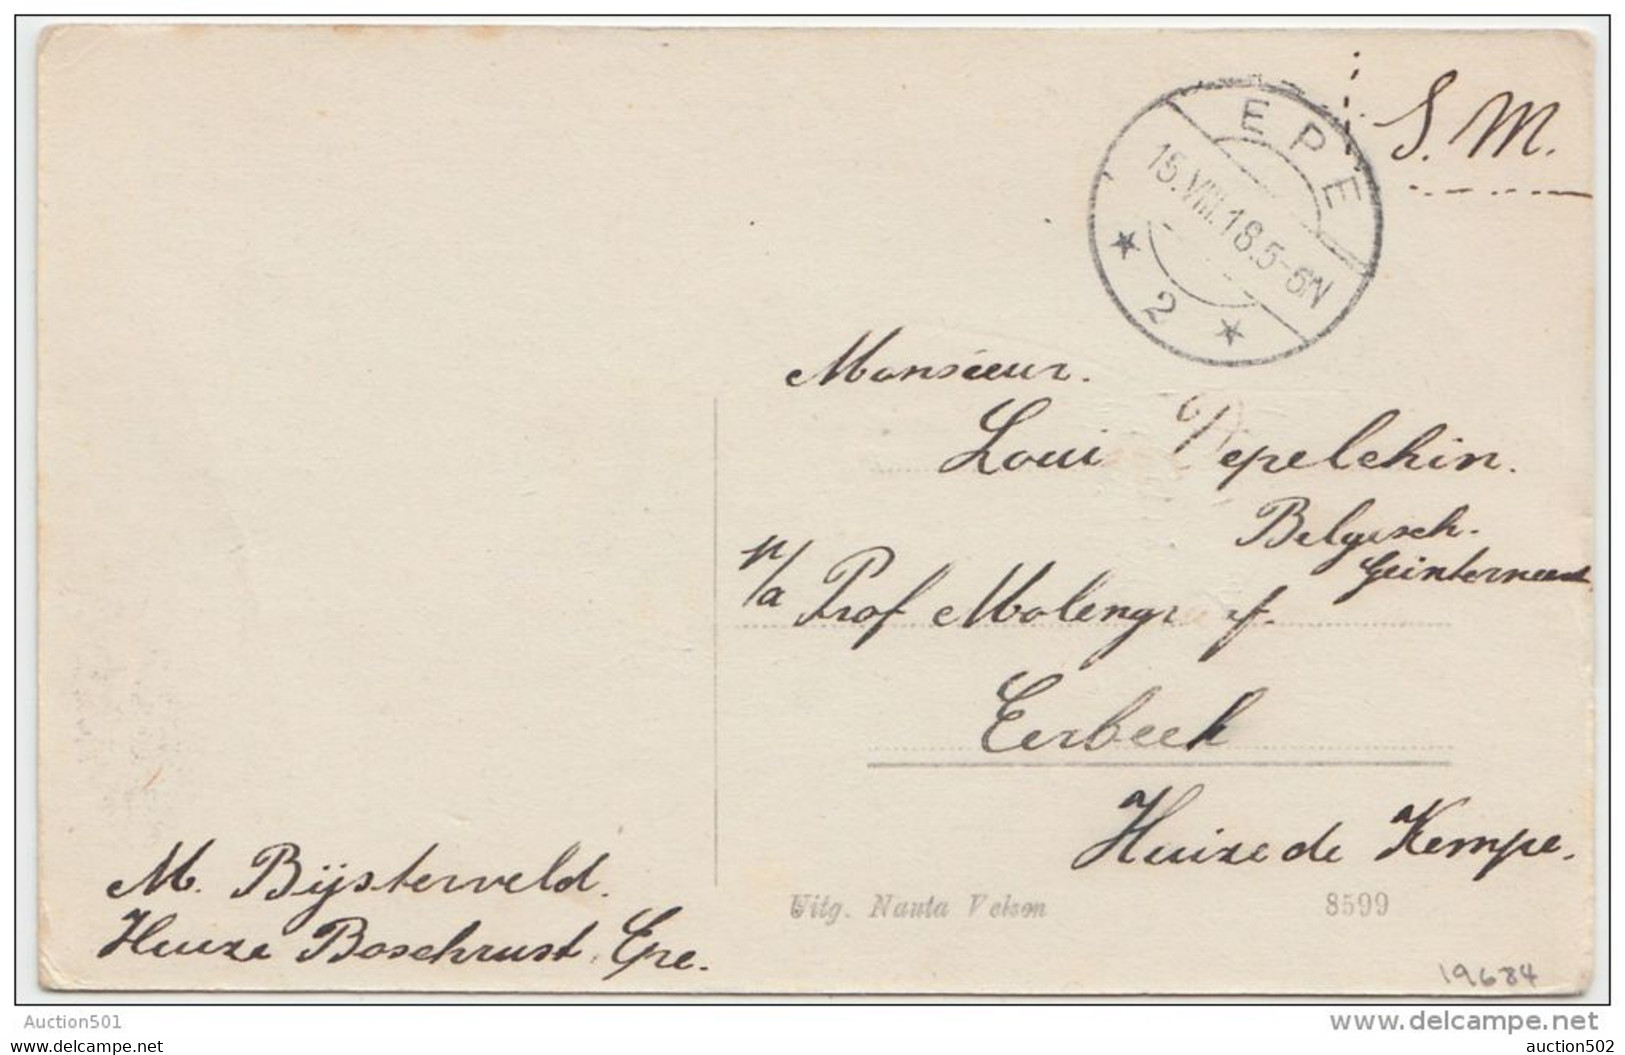 S.M.
EPE
15.VIII.18.5-6N
2
Monsieur.
Loui Depelchin.
Belgisch.
Geinterneerd
p/a Prof Molengr f.
Eerbeek
Huize de Kempe.
M. Bijsterveld.
Huize Boschrust Epe.
Uitg. Nauta Velsen
8599
19684
Auction501
www.delcampe.net
www.delcampe.net
auction502